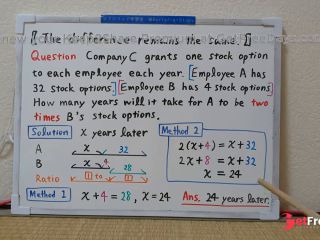 [The difference remains the same.]
Question Company C grants one stock option
to each employee each year. [Employee A has
32 stock options.] [Employee B has 4 stock options.]
How many years will it take for A to be two
times B's stock options.
Solution x years later
A x 32
B x 4 28
Ratio 1 to 1
Method 1 x+4 = 28, x = 24
Method 2
2(x+4) = x+32
2x+8 = x+32
x = 24
Ans. 24 years later.
GetFre